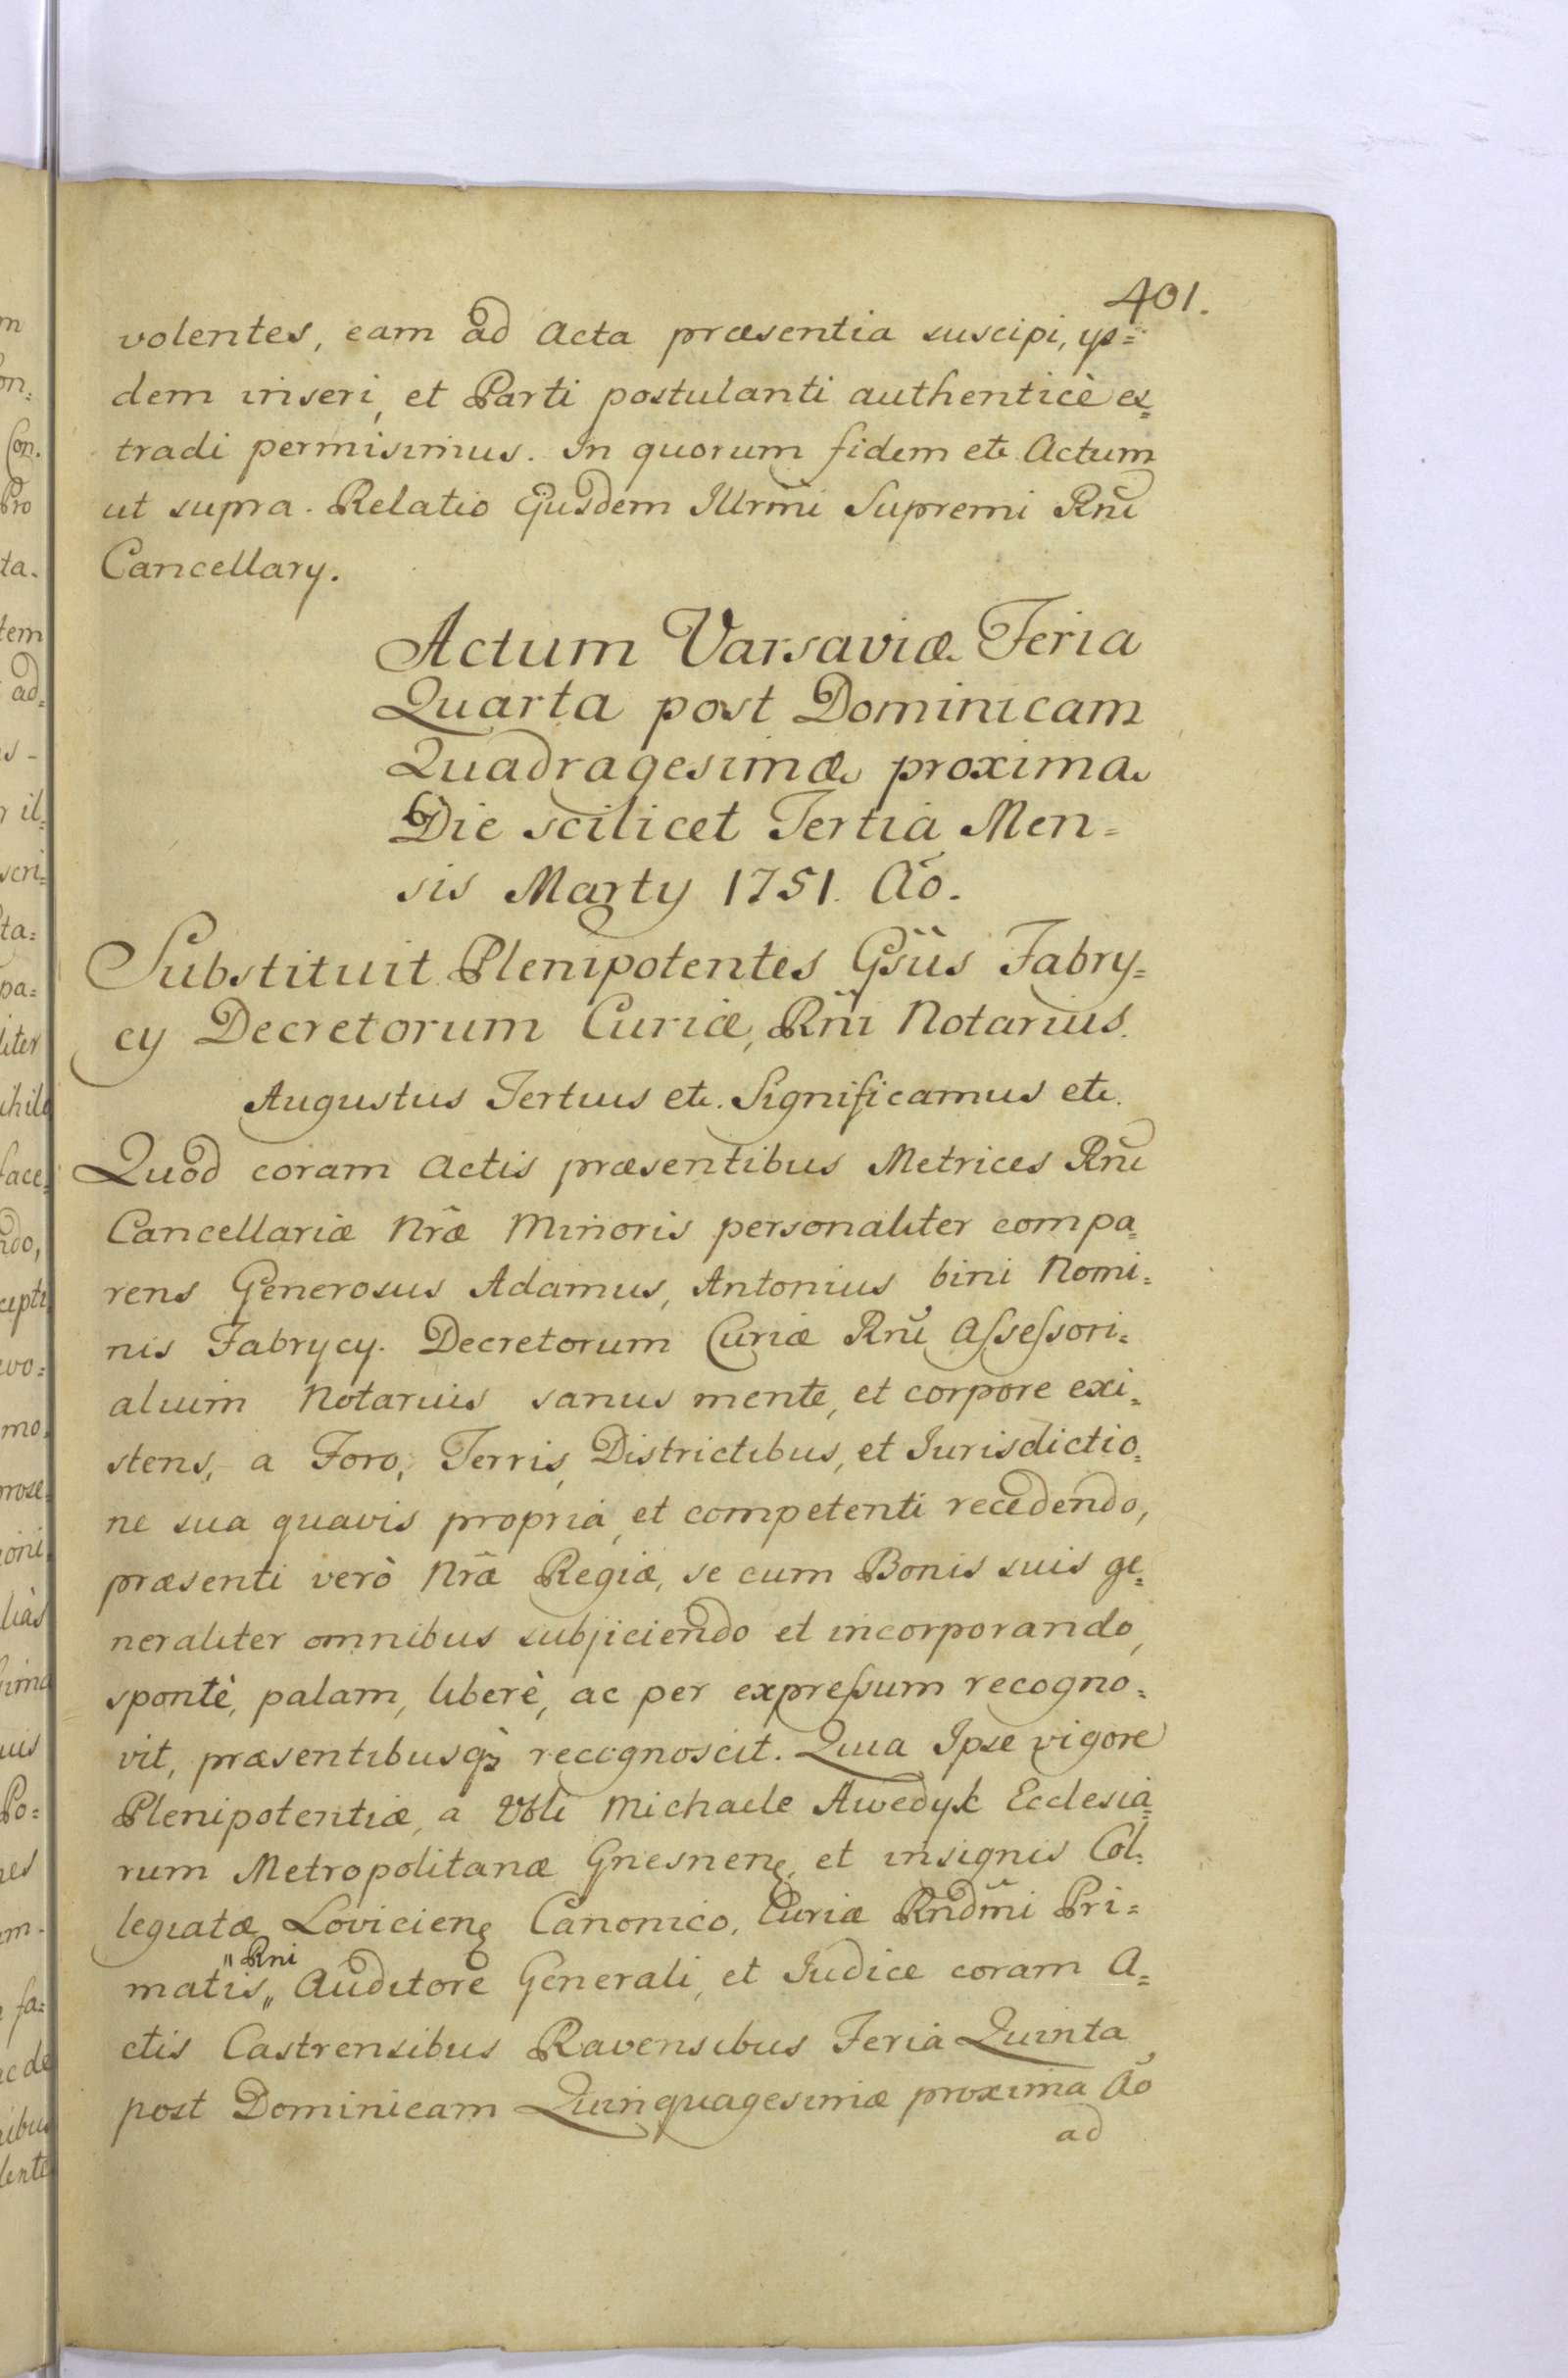 401.
volentes, eam ad Acta præsentia suscipi, ys=
dem inseri, et Parti postulanti authenticè ex=
tradi permisimus. In quorum fidem etc. Actum
ut supra. Relatio Ejusdem Illrmi Supremi Rni
Cancellary.
Actum Varsaviæ Feria
Quarta post Dominicam
Quadragesimæ proxima
Die scilicet Tertia Men=
sis Marty 1751. Ao.
Substituit Plenipotentes Gsus Fabry=
cy Decretorum Curiæ, Rni Notarius.
Augustus Tertius etc. Significamus etc.
Quod coram Actis præsentibus Metrices Rni
Cancellariæ Nræ Minoris personaliter compa=
rens Generosus Adamus, Antonius bini Nomi=
nis Fabrycy. Decretorum Curiæ Rni Assessori=
alium Notarius sanus mente, et corpore exi=
stens, a Foro, Terris, Districtibus, et Iurisdictio=
ne sua quavis propria, et competenti recedendo,
præsenti verò Nræ Regiæ, se cum Bonis suis ge=
neraliter omnibus subjiciendo et incorporando,
spontè, palam, liberè, ac per expressum recogno=
vit, præsentibusq recognoscit. Quia Ipse vigore
Plenipotentiæ, a Vbli Michaele Awedyk Ecclesia=
rum Metropolitanæ Gnesnen, et insignis Col=
legiatæ Lovicien Canonico, Curiæ Rndmi Pri=
"Rni
matis,, Auditore Generali, et Iudice coram A=
ctis Castrensibus Ravensibus Feria Quinta
post Dominicam Quinquagesimæ proxima Ao
ad